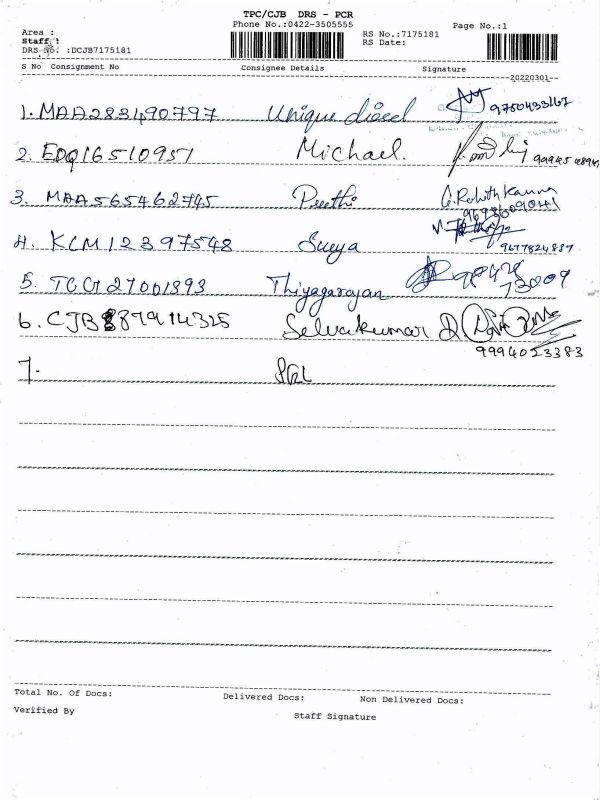 TPC/CJB DRS - PCR
Phone No.:0422-3505555
Page No.:1
Area :
Staff :
DRS No. :DCJB7175181
RS No.:7175181
RS Date:
S No Consignment No Consignee Details Signature
20220301
1. MAA283490797 Unique diesel 9750433167
2. EDQ16510951 Michael.
3. MAA565462745 Preethi G. Rohith Kanna
4. KCM12397548 Surya 9677824837
5. TCG127001393 Thiyagarayan 98428
73009
6. CJB887914325 Selvakumar D
9994023383
7.
Total No. Of Docs: Delivered Docs: Non Delivered Docs:
Verified By Staff Signature